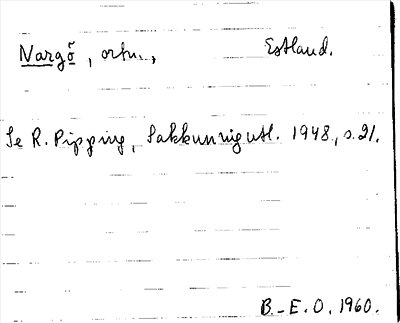 Nargö, ortn., Estland.
Se R. Pipping, Sakkunnigutl. 1948, s. 21.
B.-E. O. 1960.